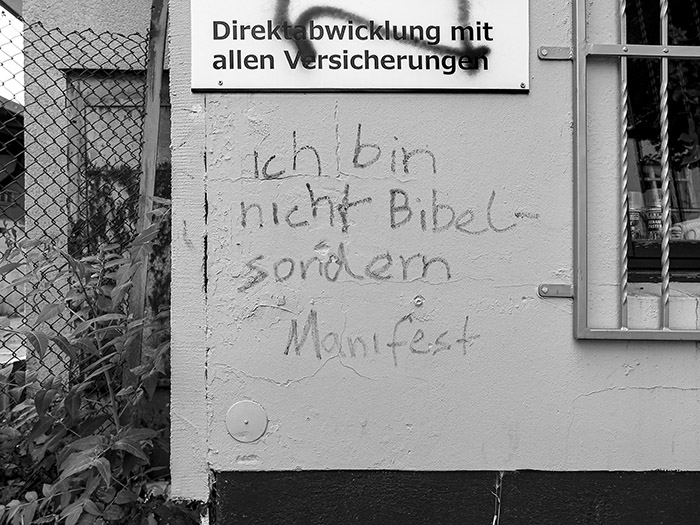 Direktabwicklung mit
allen Versicherungen
ich bin
nicht Bibel-
sondern
Manifest